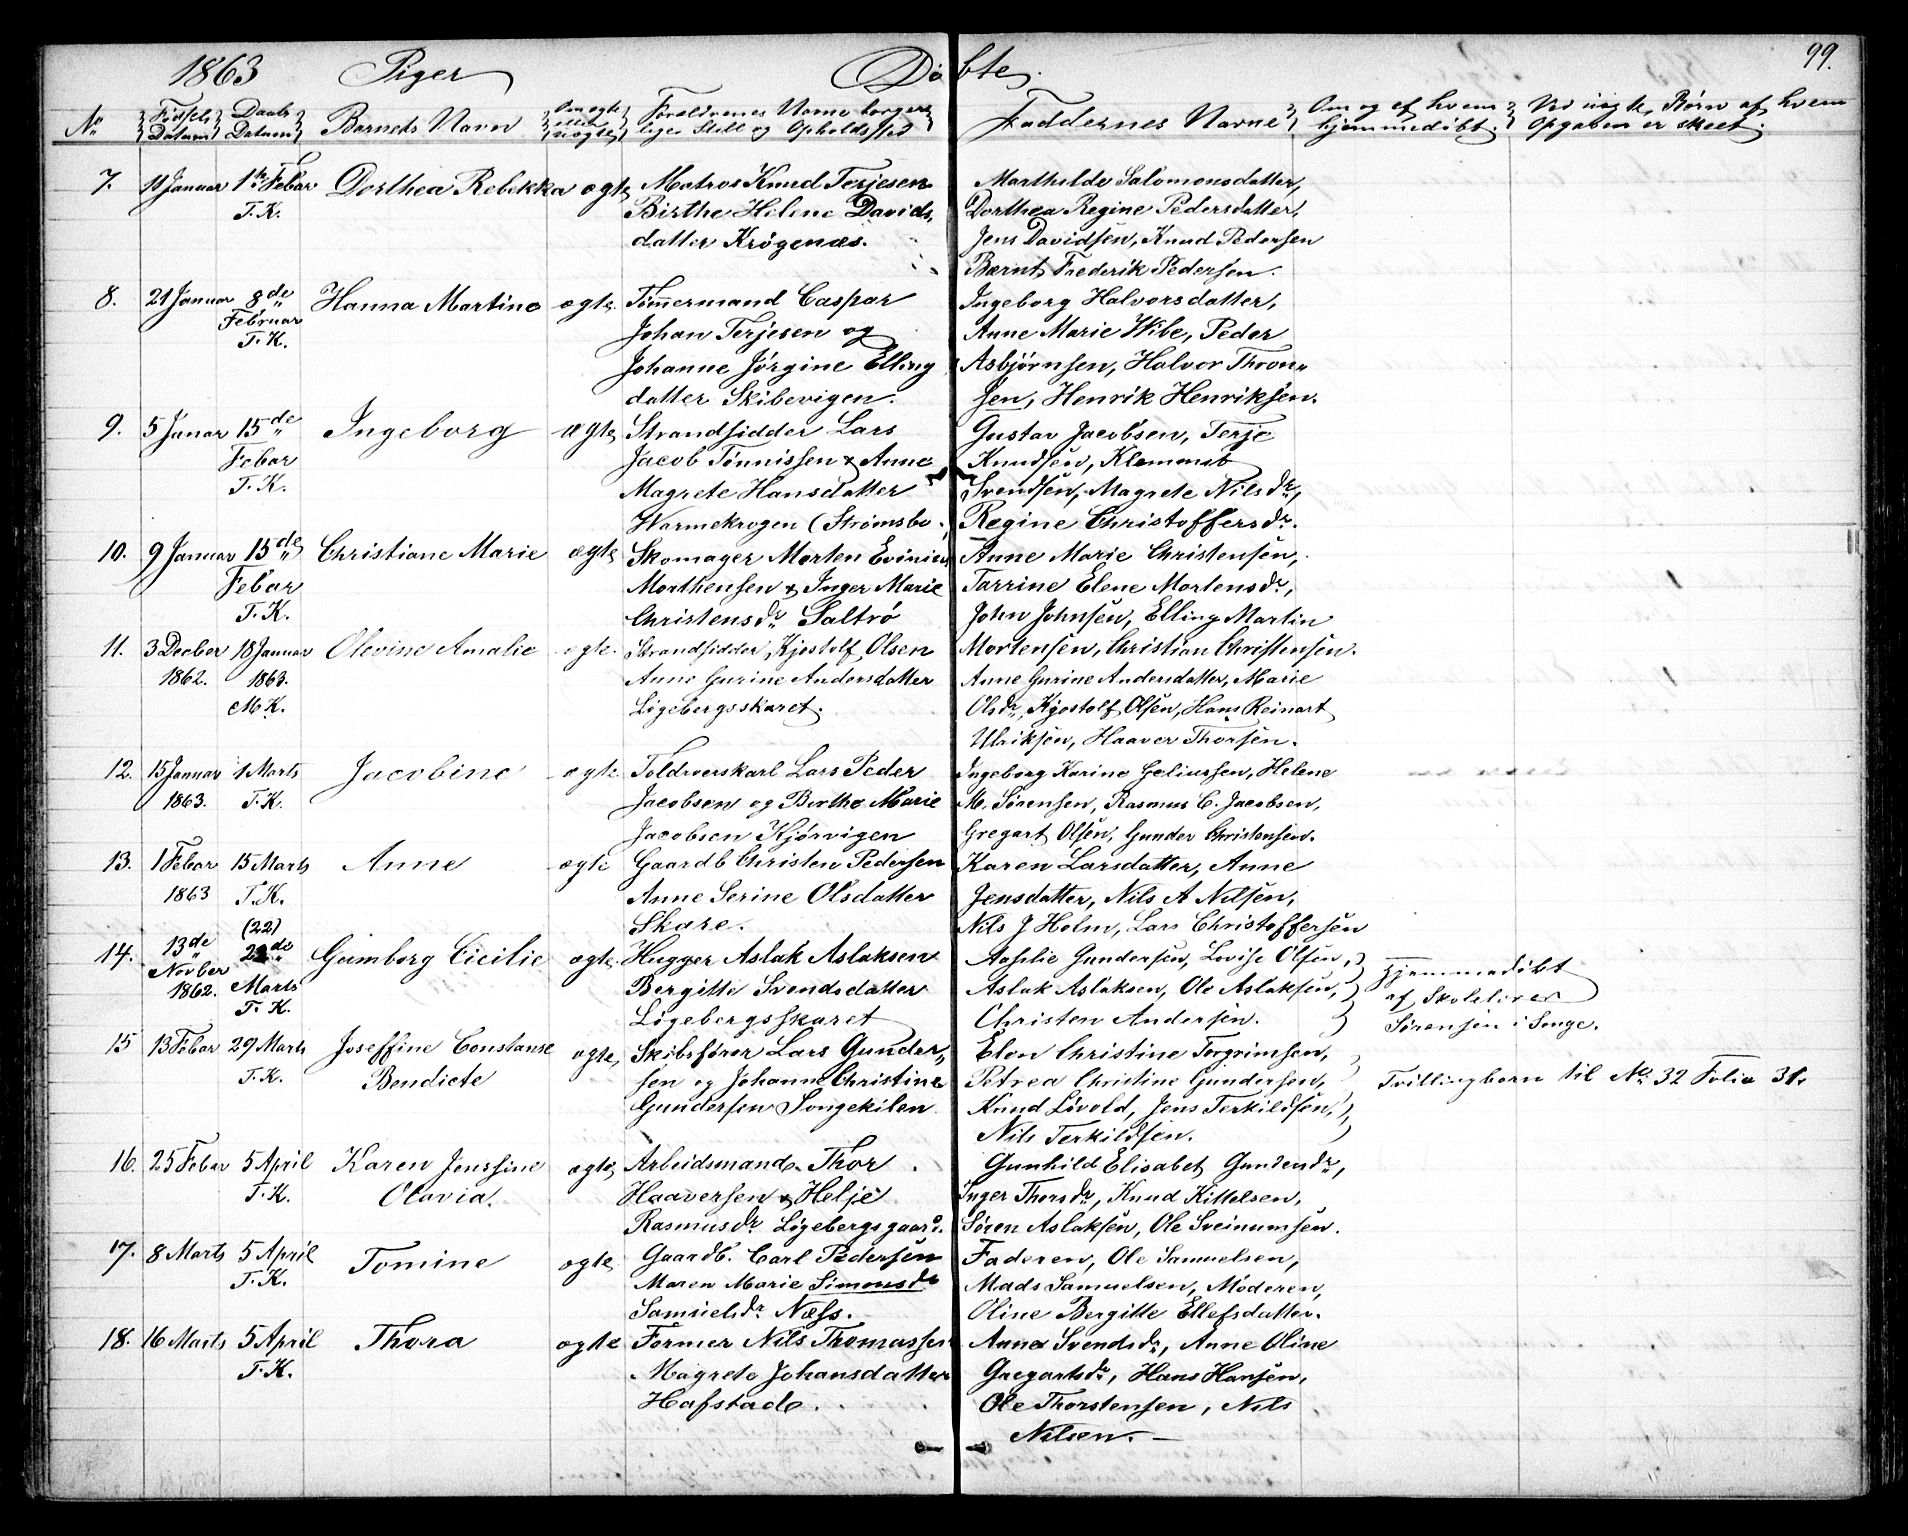 1863 Piger Døbte. 99.
No Fødsels Datum Daabs Datum Barnets Navn Om ægte eller uægte Forældrenes Navne borger- lige Still og Opholdssted Faddernes Navne Om og af hvem hjemmedøbt. Ved uægte Børn af hvem Opgaven er skeet.
7. Januar 1ste Febar Dorthea Rebekka ægte Matros Knud Terjesen Marthilde Salomonsdatter,
T. K. Birthe Helene Davids, Dorthea Regine Pedersdatter,
datter Krøgenæs. Jens Davidsen, Knud Pedersen
Bærnt Frederik Pedersen.
8. 21 Januar 8de Hanna Martine ægte. Tømmermand Caspar Ingeborg Halvorsdatter,
Februar Johan Terjesen og Anne Marie Wibe, Peder
T. K. Johanne Jørgine Elling Asbjørnsen, Halvor Thron-
datter Skibevigen. sen, Henrik Henriksen.
9. 5 Januar 15de Ingeborg ægte Strandsidder Lars Gustav Jacobsen, Terje
Febar Jacob Tønnissen & Anne Knudsen, Klemmet
T. K. Magrete Hansdatter Svendsen, Magrete Nilsdr,
Warmekrogen (Strømsbo. Regine Christoffersdr.
10. 9 Januar 15de Christiane Marie ægte Skomager Morten Evinien Anne Marie Christensen,
Febar Morthensen & Inger Marie Tarrine Elene Mortensdr,
T. K. Christensdr Saltrø John Johnsen, Elling Martin
11. 3 Decber 18 Januar Olevine Amalie ægte. Strandsidder Kjostolf Olsen Mortensen, Christian Christensen.
1862. 1863. Anne Gurine Andersdatter Anne Gurine Andersdatter, Marie
M K. Løgebergsskaret. Olsdr, Kjostolf Olsen, Hans Reinart
Ulriksen, Haaver Thorsen.
12. 15 Januar 1 Marts Jacobine ægte. Toldroerskarl Lars Peder Ingeborg Karine Geliussen, Helene
1863. T. K. Jacobsen og Birthe Marie M. Sørensen, Rasmus C. Jacobsen,
Jacobsen Kjørvigen Gregart Olsen, Gunder Christensen.
13. 1 Febar 15 Marts Anne ægte Gaardb Christen Pedersen Karen Larsdatter, Anne
1863 T. K. Anne Serine Olsdatter Jensdatter, Nils A Nilsen,
(22) Skare. Nils J Holm, Lars Christoffersen
14. 13de 22de Gumborg Cicilie ægte. Hugger Aslak Aslaksen Aaselie Gundersen, Lovise Olsen, Hjemmedøbt
Novber Marts Bergitte Svendsdatter Aslak Aslaksen, Ole Aslaksen, af Skolelærer
1862. T. K. Løgebergsskaret Christen Andersen. Sørensen i Songe.
15 13 Febar 29 Marts Joseffine Constanse ægte, Skibsfører Lars Gunder- Elen Christine Torgrimsen,
T. K. Bendicte sen og Johanne Christine Petrea Christine Gundersen, Tvillingbarn til No 32 Folio 31.
Gundersen Songekilen. Knud Løvold, Jens Terkildsen,
Nils Terkildsen.
16. 25 Febar 5 April Karen Jenssine ægte, Arbeidsmand Thor Gunhild Elisabet Gundersdr,
T. K. Olavia. Haaversen & Helje Inger Thorsdr, Knud Kittelsen,
Rasmusdr Løgebergsgaard. Søren Aslaksen, Ole Sveinumsen.
17. 8 Marts 5 April Tomine ægte Gaardb. Carl Pedersen Faderen, Ole Samuelsen,
T. K. Maren Marie Simonsdr Mads Samuelsen, Moderen,
Samuelsdr Næss. Oline Bergitte Ellefsdatter.
18. 16 Marts 5 April Thora ægte Former Nils Thomassen Anne Svendsdr, Anne Oline
T. K. Magrete Johansdatter Gregartsdr, Hans Hansen,
Hafstad. Ole Thorstensen, Nils
Nilsen.